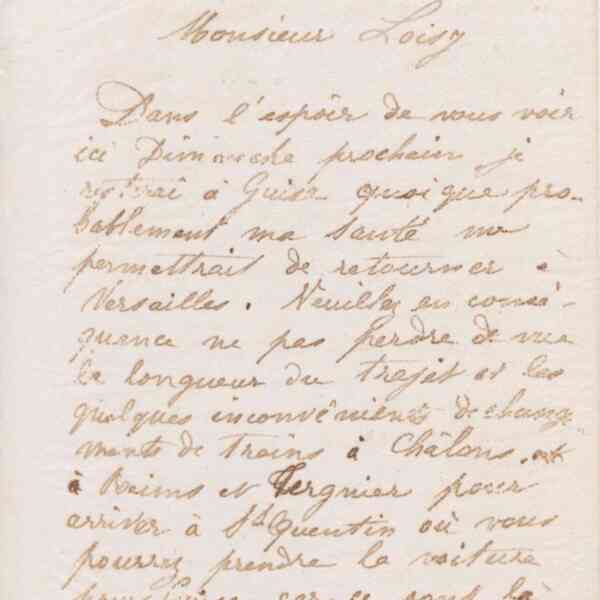 Monsieur Loisy
Dans l'espoir de vous voir
ici Dimanche prochain je
resterai à Guise quoique pro-
bablement ma santé me
permettrait de retourner à
Versailles. Veuillez en consé-
quence ne pas perdre de vue
la longueur du trajet et les
quelques inconvénients de change
ments de trains à Châlons,
à Reims et Tergnier pour
arriver à St Quentin où vous
pourrez prendre la voiture
car ce sont là